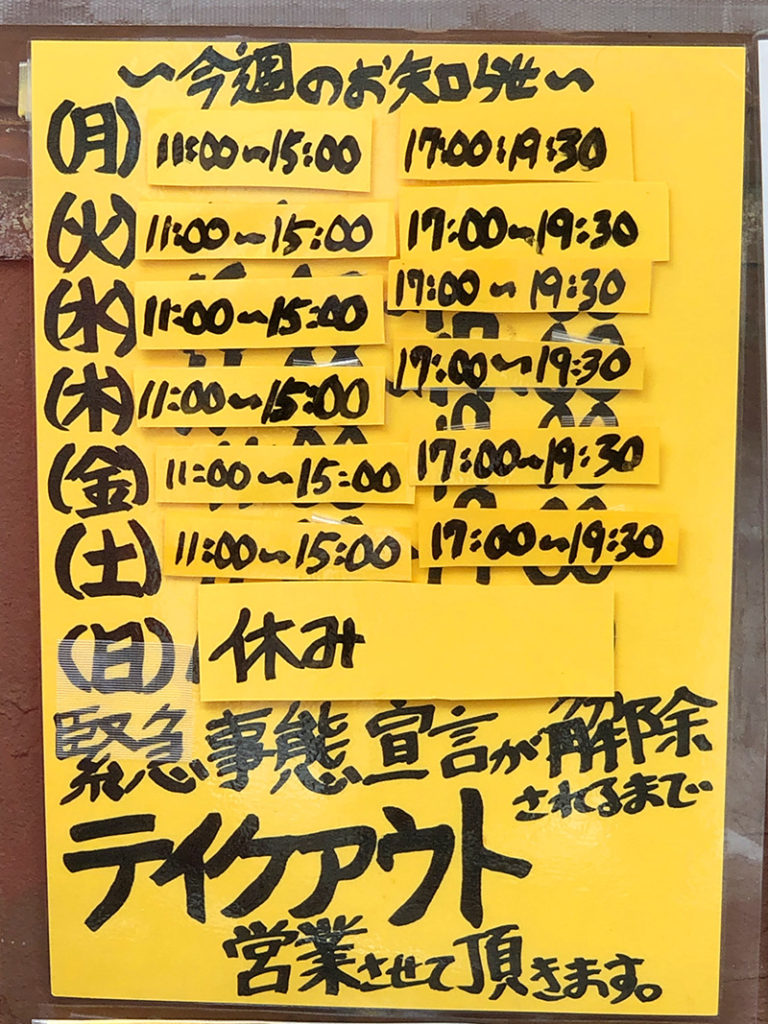 ～今週のお知らせ～
(月) 11:00～15:00 17:00:19:30
(火) 11:00～15:00 17:00～19:30
(水) 11:00～15:00 17:00～19:30
(木) 11:00～15:00 17:00～19:30
(金) 11:00～15:00 17:00～19:30
(土) 11:00～15:00 17:00～19:30
(日) 休み
緊急事態宣言が解除
されるまで
テイクアウト
営業させて頂きます。